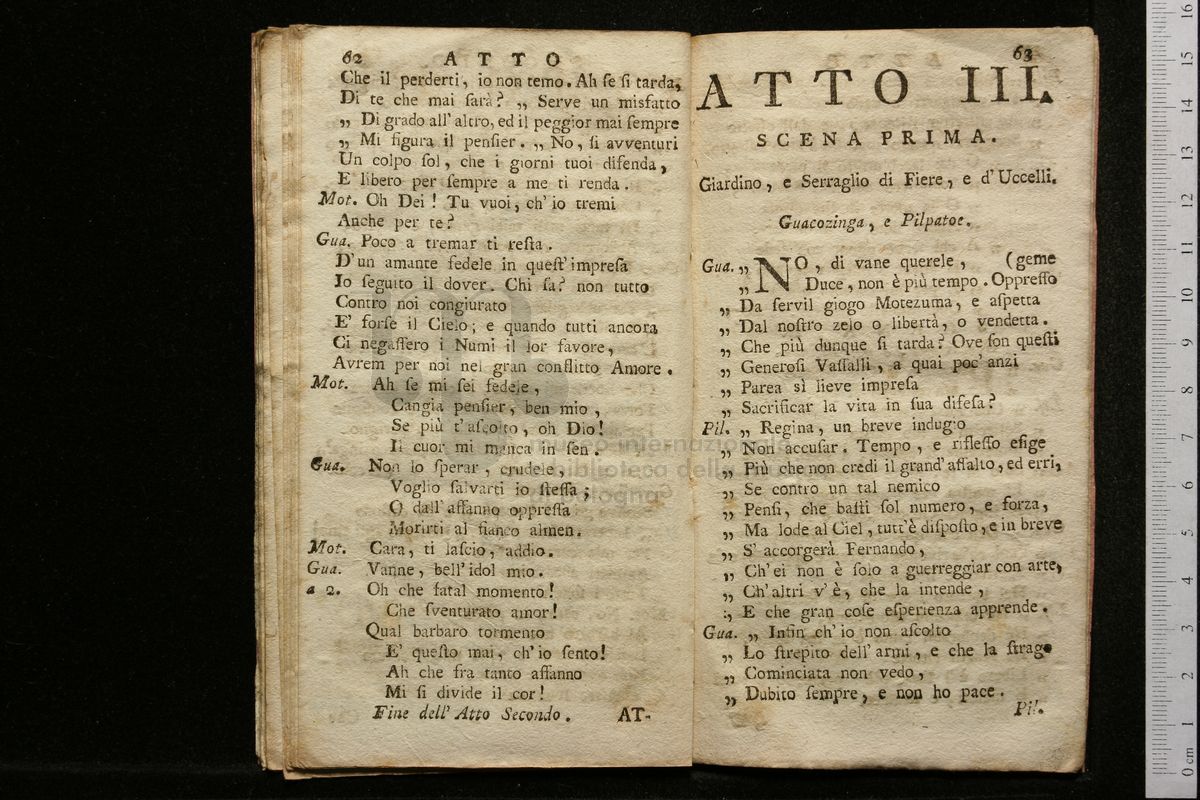 62 ATTO
Che il perderti, io non temo. Ah ſe ſi tarda,
Di te che mai ſarà? „ Serve un misfatto
„ Di grado all' altro, ed il peggior mai ſempre
„ Mi figura il penſier. „ No, ſi avventuri
Un colpo ſol, che i giorni tuoi difenda,
E libero per ſempre a me ti renda.
Mot. Oh Dei! Tu vuoi, ch' io tremi
Anche per te?
Gua. Poco a tremar ti reſta.
D'un amante fedele in queſt' impreſa
Io ſeguito il dover. Chi ſa? non tutto
Contro noi congiurato
E' forſe il Cielo; e quando tutti ancora
Ci negaſſero i Numi il lor favore,
Avrem per noi nel gran conflitto Amore.
Mot. Ah ſe mi ſei fedele,
Cangia penſier, ben mio,
Se più t'aſcolto, oh Dio!
Il cuor mi manca in ſen.
Gua. Non lo ſperar, crudele,
Voglio ſalvarti io ſteſſa;
O dall' affanno oppreſſa
Morirti al fianco almen.
Mot. Cara, ti laſcio, addio.
Gua. Vanne, bell' idol mio.
a 2. Oh che fatal momento!
Che ſventurato amor!
Qual barbaro tormento
E' queſto mai, ch' io ſento!
Ah che fra tanto affanno
Mi ſi divide il cor!
Fine dell' Atto Secondo. AT-
63
ATTO III.
SCENA PRIMA.
Giardino, e Serraglio di Fiere, e d' Uccelli.
Guacozinga, e Pilpatoe.
Gua. „ NO, di vane querele, (geme
„ Duce, non è più tempo. Oppreſſo
„ Da ſervil giogo Motezuma, e aſpetta
„ Dal noſtro zelo o libertà, o vendetta.
„ Che più dunque ſi tarda? Ove ſon queſti
„ Generoſi Vaſſalli, a quai poc' anzi
„ Parea sì lieve impreſa
„ Sacrificar la vita in ſua difeſa?
Pil. „ Regina, un breve indugio
„ Non accuſar. Tempo, e rifleſſo eſige
„ Più che non credi il grand' aſſalto, ed erri,
„ Se contro un tal nemico
„ Penſi, che baſti ſol numero, e forza,
„ Ma lode al Ciel, tutt'è diſpoſto, e in breve
„ S' accorgerà Fernando,
„ Ch' ei non è ſolo a guerreggiar con arte,
„ Ch' altri v' è, che la intende,
„ E che gran coſe eſperienza apprende.
Gua. „ Inſin ch' io non aſcolto
„ Lo ſtrepito dell' armi, e che la ſtrage
„ Cominciata non vedo,
„ Dubito ſempre, e non ho pace.
Pil.
museo internazionale
biblioteca della musica
bologna
0 cm 1 2 3 4 5 6 7 8 9 10 11 12 13 14 15 16